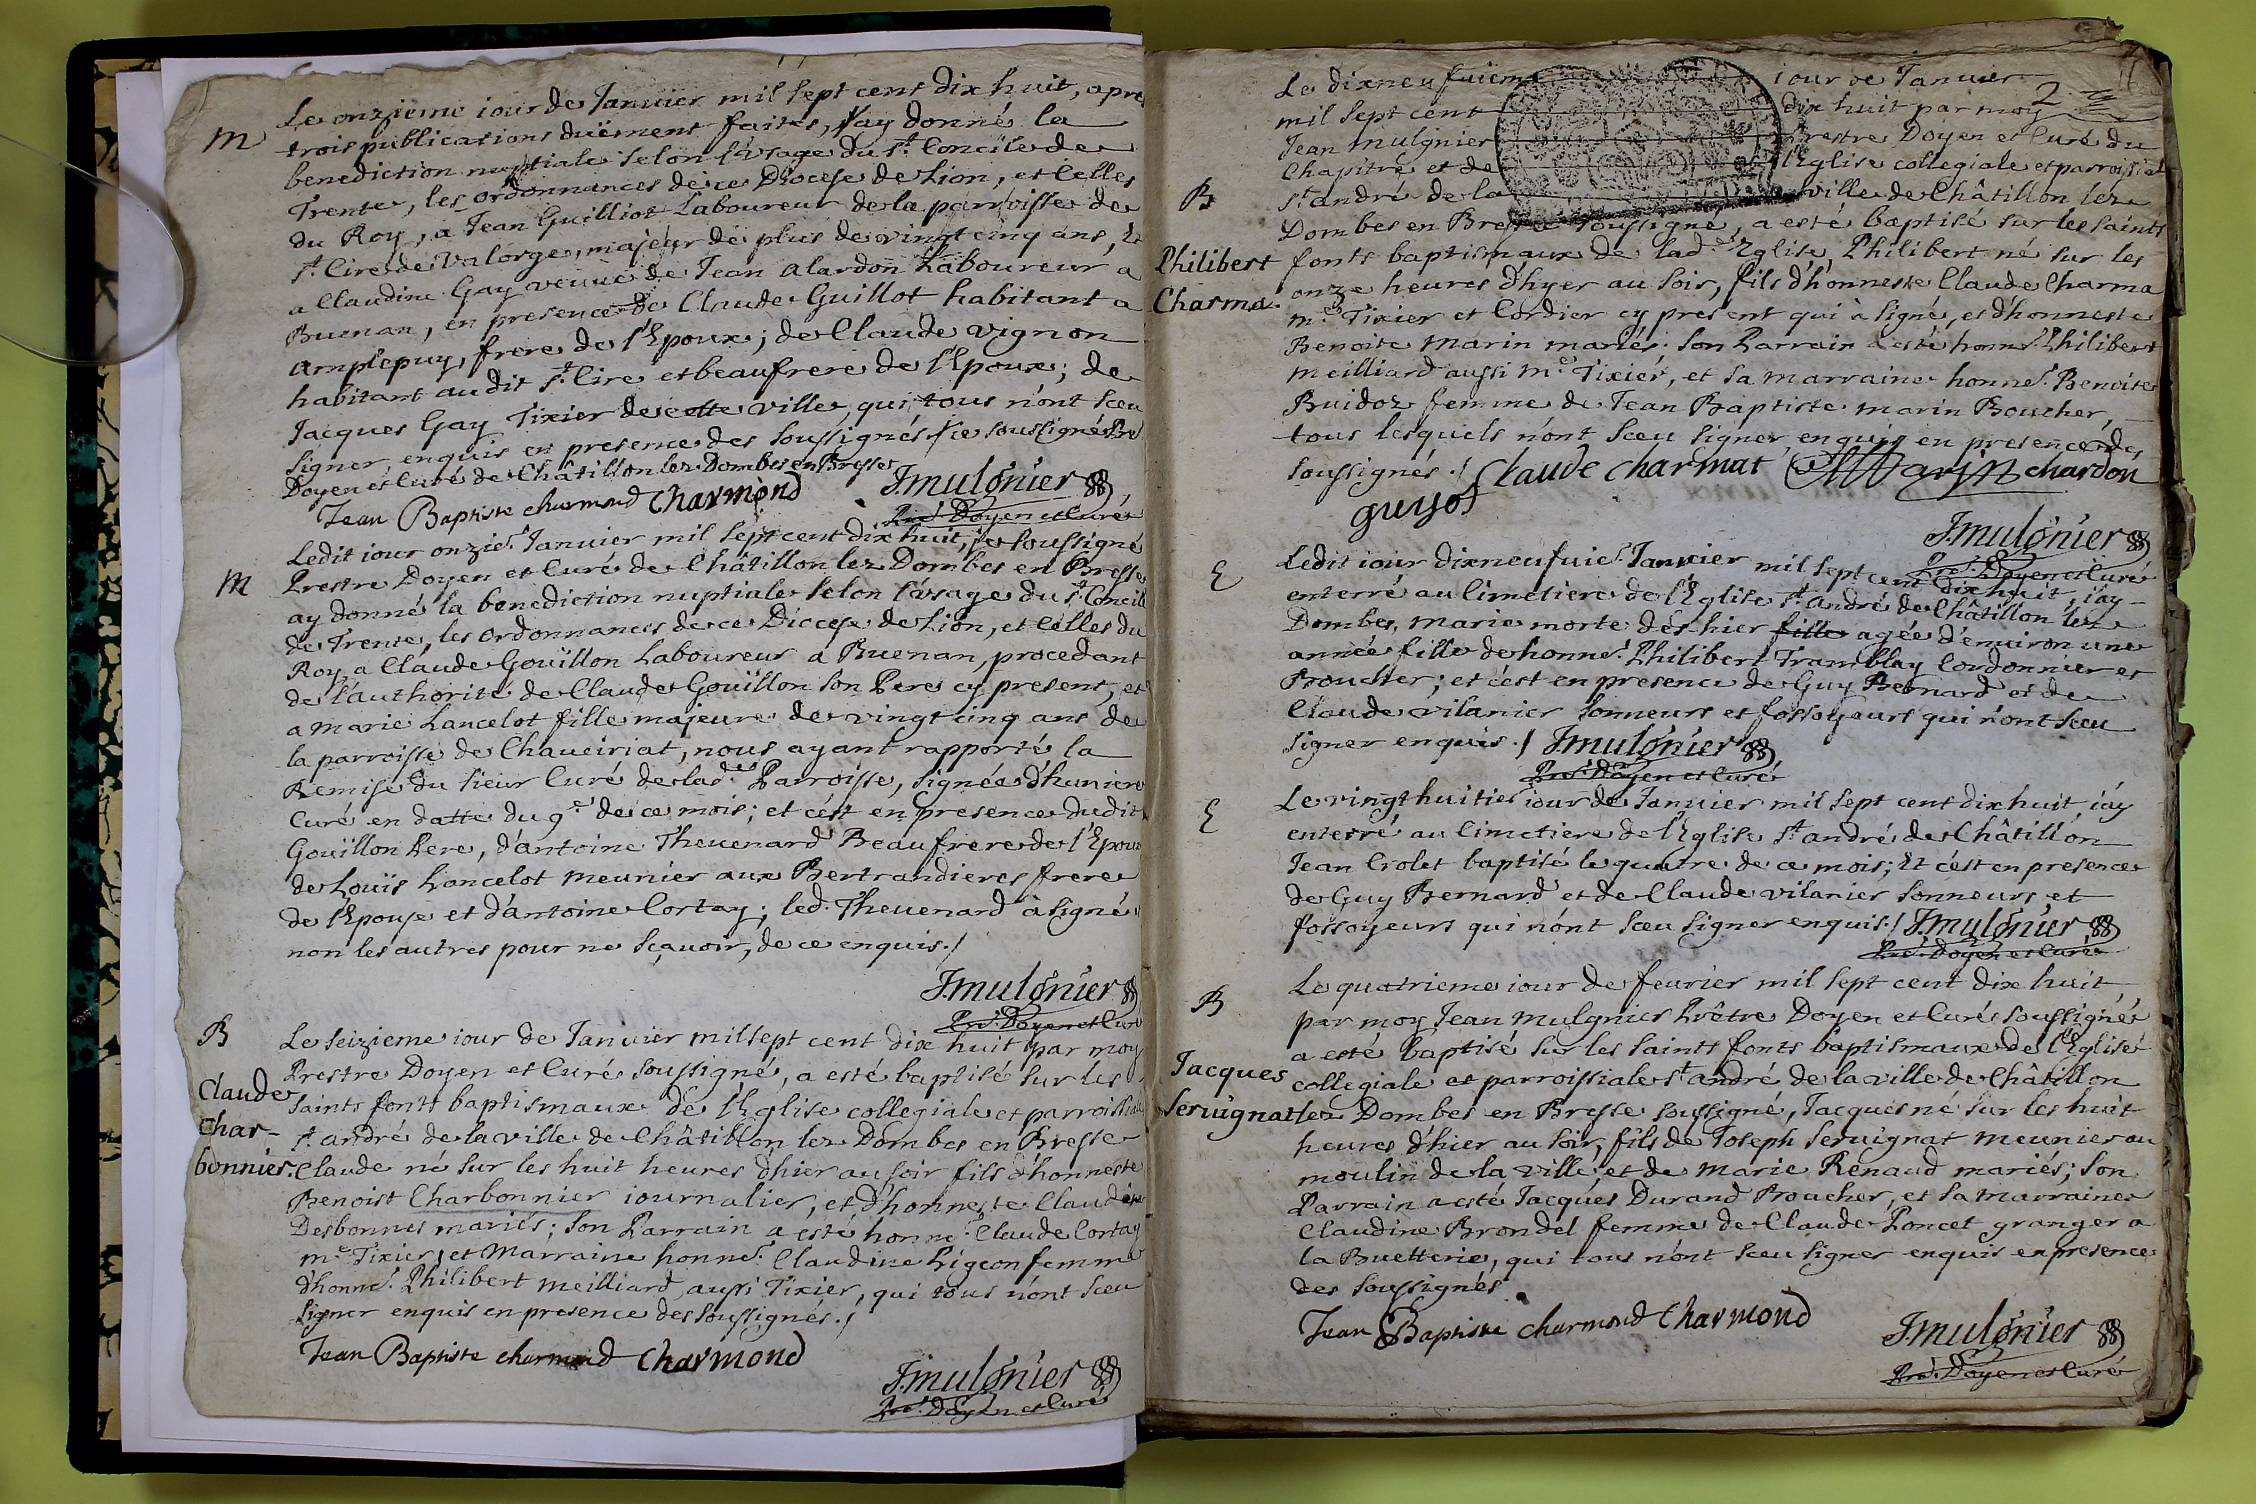 M
Le onzieme iour de Ianuier mil sept cent dix huit, apres
trois publications duëment faites, i'ay donné la
benediction nuptiale selon l'vsage du st. Concile de
Trente, les ordonnances de ce Diocese de Lion, et Celles
du Roy, a Jean Guilliot Laboureur de la parroisse de
st. Cire de Valorge, majeur de plus de vingt cinq ans, Et
a Claudine Gay veuue de Jean alardon Laboureur a
Buenan, en presence de Claude Guillot habitant a
amplepuy, frere de l'Epoux; de Claude vignon
habitant audit st. Cire et beaufrere de l'Epoux; de
Jacques Gay Tixier de cette ville, qui tous n'ont sceu
signer enquis en presence des soussignés / ie soussigné Pre
Doyen et Curé de Châtillon lez Dombes en Bresse
Jean Baptiste charmond Charmond J. mulgnier
Pre. Doyen et Curé
M
Ledit iour onzie. Ianuier mil sept cent dix huit, ie soussigné
Prestre Doyen et Curé de Châtillon lez Dombes en Bresse
ay donné la benediction nuptiale selon l'vsage du st. Concile
de Trente, les ordonnances de ce Diocese de Lion, et Celles du
Roy, a Claude Goüillon Laboureur a Buenan, procedant
de l'authorité de Claude Goüillon son Pere cy present, et
a Marie Lancelot fille majeure de vingt cinq ans de
la parroisse de Chaueiriat, nous ayant rapporté la
Remise du sieur Curé de lad.e Parroisse, signée d'huniere
Curé en datte du 9e. de ce mois; et c'est en presence dudit
Goüillon Pere, d'antoine Theuenard Beaufrere de l'Epoux
de Loüis Lancelot meunier aux Bertrandieres frere
de l'Epouse et d'antoine Cortay; led. Theuenard à signé
non les autres pour ne sçauoir, de ce enquis./
J. mulgnier
Pre. Doyen et Curé
B
Claude
Char-
bonnier.
Le seizieme iour de Ianuier mil sept cent dix huit par moy
Prestre Doyen et Curé soussigné, a esté baptisé sur les
saints fonts baptismaux de l'Eglise collegiale et parroissiale
st. andré de la ville de Châtillon lez Dombes en Bresse
Claude né sur les huit heures d'hier au soir fils d'honneste
Benoist Charbonnier iournalier, et d'honneste Claudine
Desbonnes mariés; son Parrain a esté honne. Claude Cortay
me. Tixier, et Marraine honnes. Claudine Ligeon femme
d'honnes. Philibert meilliard aussi Tixier, qui tous n'ont sceu
signer enquis en presence des soussignés./
Jean Baptiste charmond Charmond
J. mulgnier
Pre. Doyen et Curé
2
B
Philibert
Charma.
Le dixneufuieme iour de Ianuier
mil sept cent dix huit par moy
Jean mulgnier Prestre Doyen et Curé du
Chapitre et de l'Eglise collegiale et parroissiale
st. andré de la ville de Châtillon lez
Dombes en Bresse soussigné, a esté baptisé sur les saints
fonts baptismaux de lad.e Eglise, Philibert né sur les
onze heures d'hyer au soir, fils d'honneste Claude Charma
me. Tixier et Cordier cy present qui à signé, et d'honneste
Benoite marin mariés. son Parrain a esté honne. Philibert
meilliard aussi me. Tixier, et sa marraine honnes. Benoite
Buidoz femme de Jean Baptiste marin Boucher,
tous lesquels n'ont sceu signer enquis en presence des
soussignés./ Claude charmat Marin chardon
guyot
J. mulgnier
Pre. Doyen et Curé
E
Ledit iour dixneufuie. Ianuier mil sept cent dix huit, i'ay
enterré au Cimetiere de l'Eglise st. andré de Châtillon lez
Dombes, marie morte des hier fille agée d'enuiron une
année fille de honne. Philibert Tramblay Cordonnier et
Boucher; et c'est en presence de Guy Bernard et de
Claude vilanier sonneurs et fossoyeurs qui n'ont sceu
signer enquis./ J. mulgnier
Pre. Doyen et Curé
E
Le vingt huitie. iour de Ianuier mil sept cent dix huit i'ay
enterré au Cimetiere de l'Eglise st. andré de Châtillon
Jean Crolet baptisé le quatre de ce mois; Et c'est en presence
de Guy Bernard et de Claude vilanier sonneurs et
fossoyeurs qui n'ont sceu signer enquis./ J. mulgnier
Pre. Doyen et Curé
B
Jacques
Seruignat
Le quatrieme iour de feurier mil sept cent dix huit
par moy Jean mulgnier Prêtre Doyen et Curé soussigné
a esté baptisé sur les saints fonts baptismaux de l'Eglise
collegiale et parroissiale st andré de la ville de Châtillon
lez Dombes en Bresse soussigné, Jacques né sur les huit
heures d'hier au soir, fils de Joseph Seruignat meunier au
moulin de la ville, et de Marie Renaud mariés; son
Parrain a esté Jacques Durand Boucher, et sa marraine
Claudine Brondel femme de Claude Poncet granger a
la Buetterie, qui tous n'ont sceu signer enquis en presence
des soussignés
Jean Baptiste charmond Charmond
J. mulgnier
Pre. Doyen et Curé